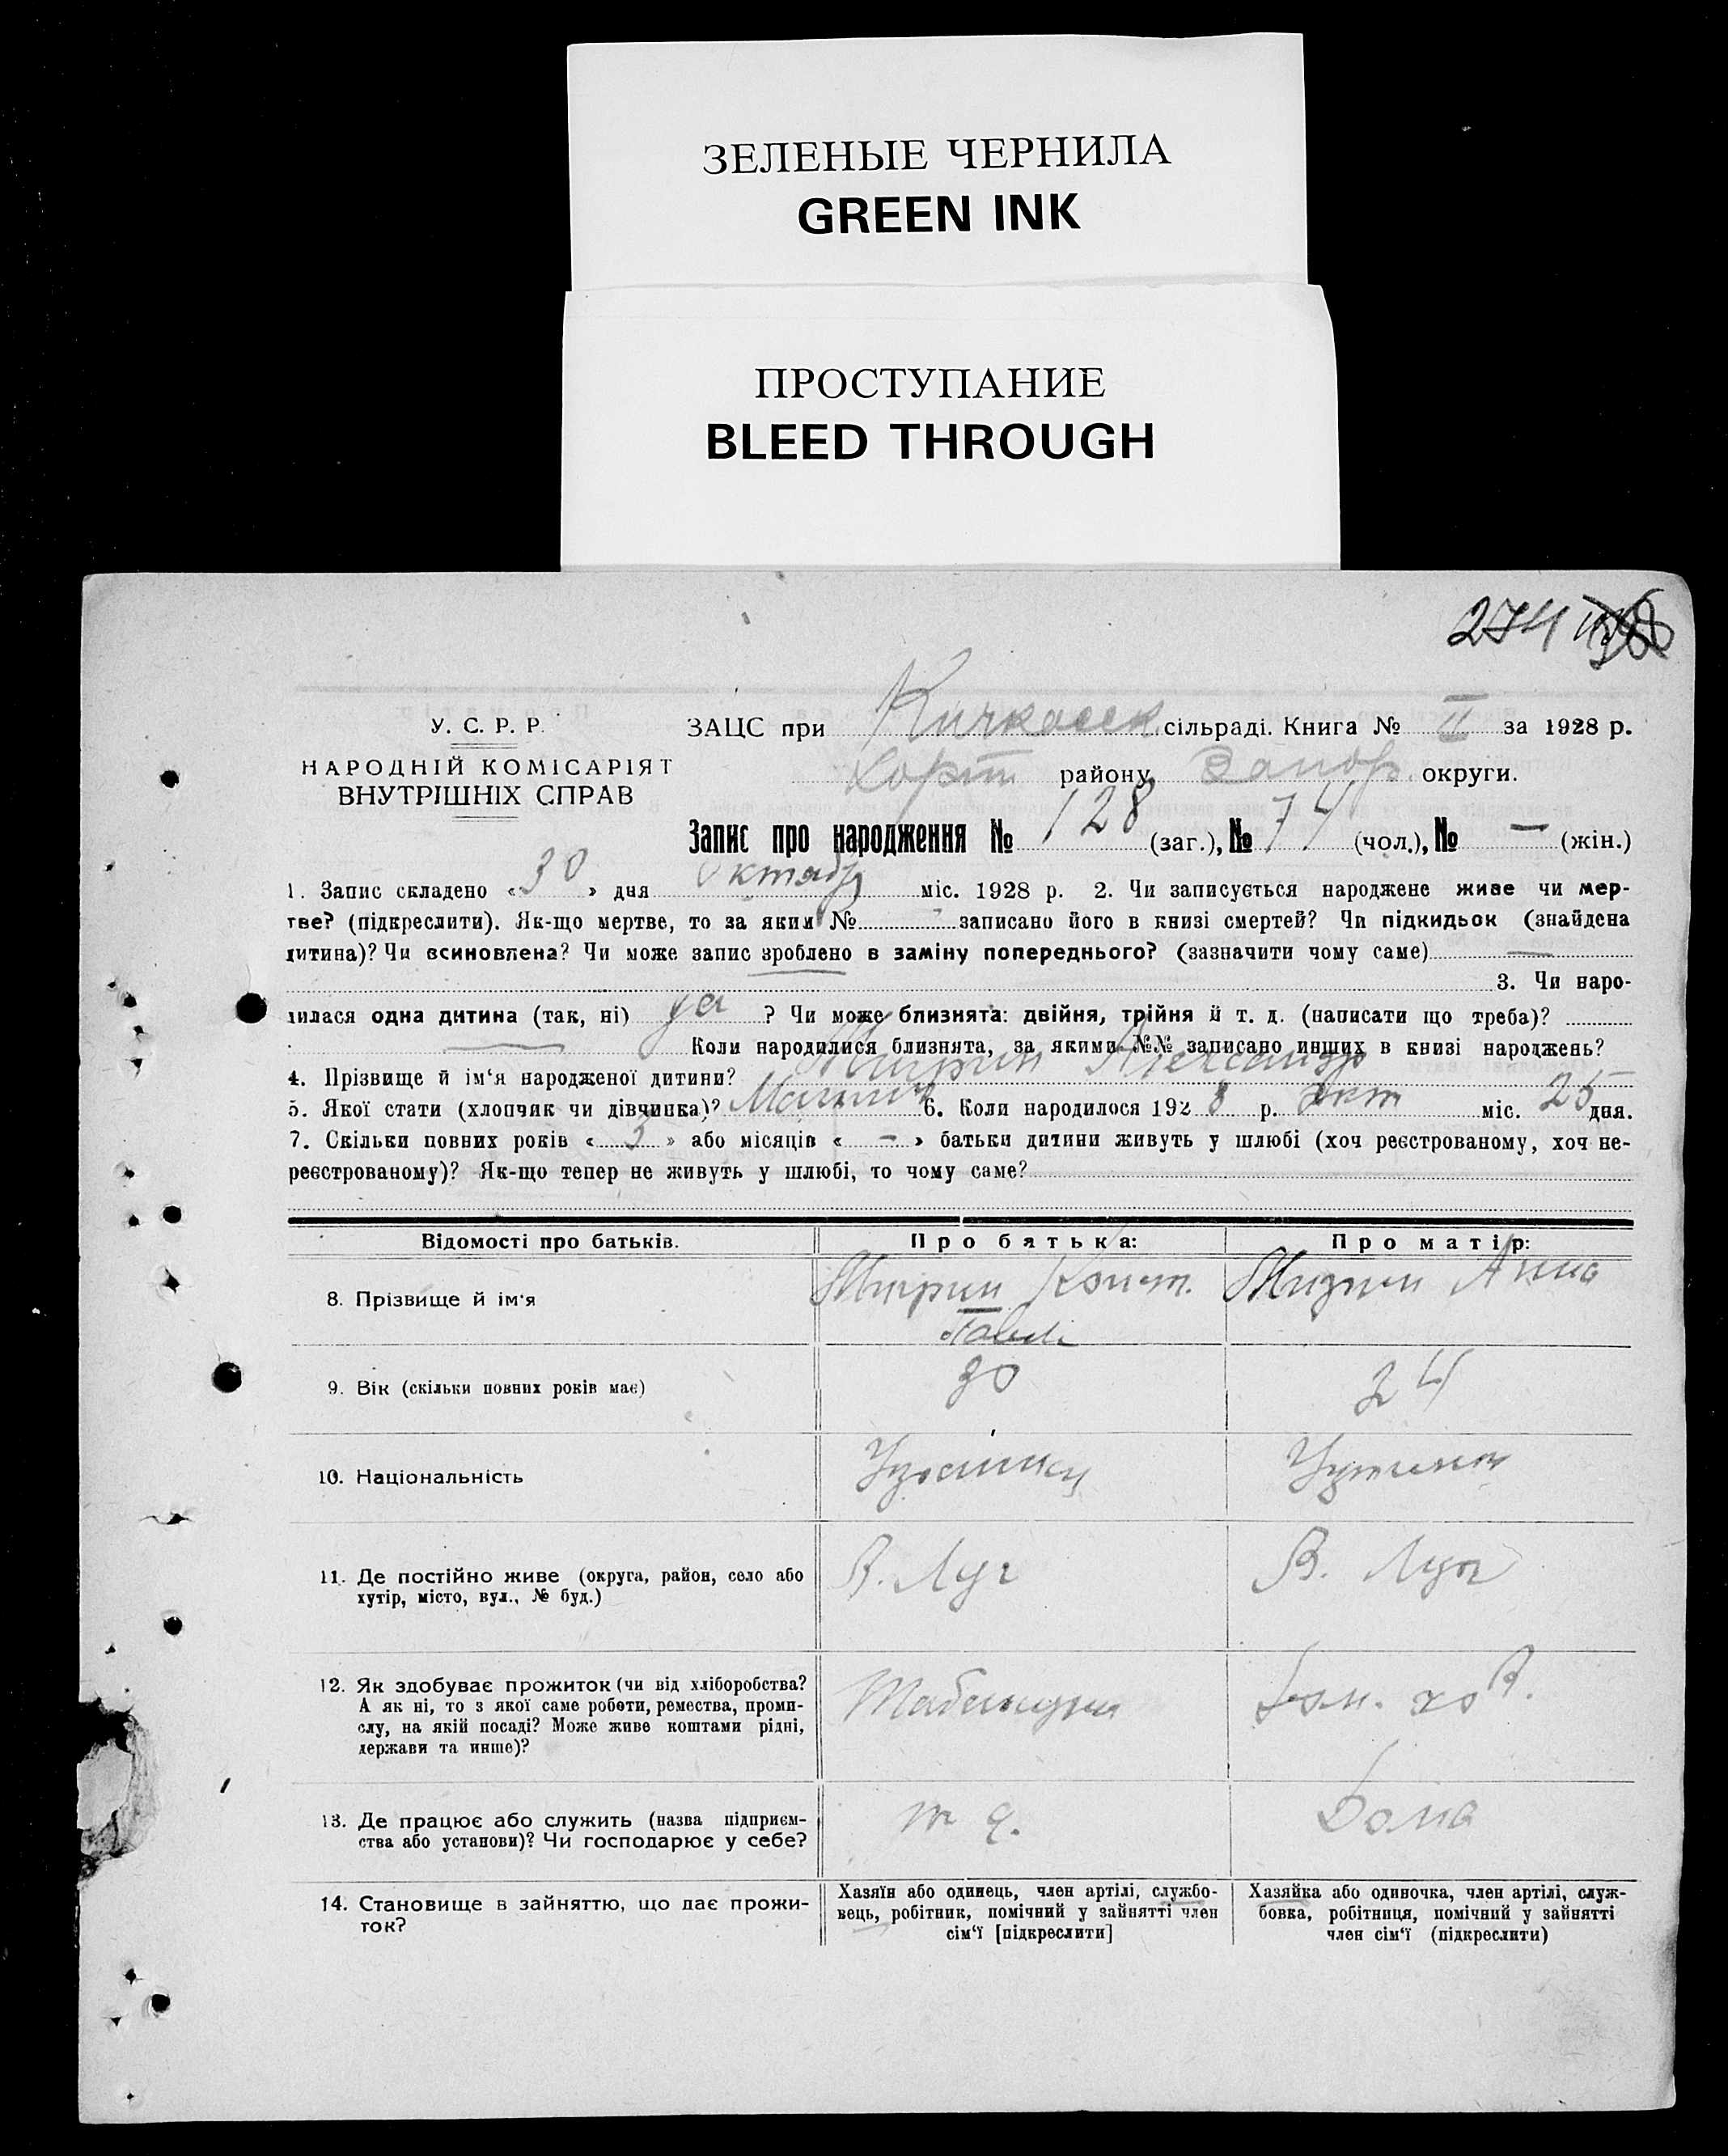 ЗЕЛЕНЫЕ ЧЕРНИЛА
GREEN INK
ПРОСТУПАНИЕ
BLEED THROUGH
274
У. С. Р. Р.
НАРОДНІЙ КОМІСАРІЯТ
ВНУТРІШНІХ СПРАВ
ЗАЦС при Кичкасск сільраді. Книга № II за 1928 р.
Хорт району, Запор округи.
Запис про народження № 128 (заг.), № 74 (чол.), № — (жін.)
1. Запис складено «30» дня Октябр міс. 1928 р. 2. Чи записується народжене живе чи мер-
тве? (підкреслити). Як-що мертве, то за яким № записано його в книзі смертей? Чи підкидьок (знайдена
дитина)? Чи всиновлена? Чи може запис зроблено в заміну попереднього? (зазначити чому саме) —
3. Чи наро-
дилася одна дитина (так, ні) да ? Чи може близнята: двійня, трійня й т. д. (написати що треба)?
Коли народилися близнята, за якими №№ записано инших в книзі народжень?
4. Прізвище й ім‘я народженої дитини? Александр
5. Якої стати (хлопчик чи дівчинка)? 6. Коли народилося 1928 р. Окт міс. 25 дня.
7. Скільки повних років «3» або місяців «—» батьки дитини живуть у шлюбі (хоч реєстрованому, хоч не-
реєстрованому)? Як-що тепер не живуть у шлюбі, то чому саме?
Відомості про батьків. Про батька: Про матір:
8. Прізвище й ім‘я Конст. Анна
Павл
9. Вік (скільки повних років має) 30 24
10. Національність
11. Де постійно живе (округа, район, село або
хутір, місто, вул., № буд.)
В. Луг В. Луг
12. Як здобуває прожиток (чи від хліборобства?
А як ні, то з якої саме роботи, ремества, проми-
слу, на якій посаді? Може живе коштами рідні,
держави та инше)?
Дом. хоз.
13. Де працює або служить (назва підприєм-
ства або установи)? Чи господарює у себе?
Дома
14. Становище в зайняттю, що дає прожи-
ток?
Хазяїн або одинець, член артілі, службо-
вець, робітник, помічний у зайнятті член
сім‘ї [підкреслити]
Хазяйка або одиночка, член артілі, служ-
бовка, робітниця, помічний у зайнятті
член сім‘ї (підкреслити)